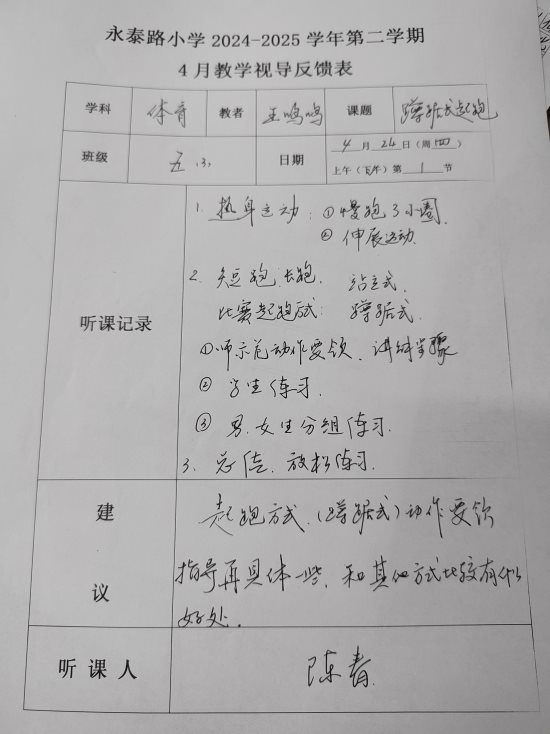 永泰路小学2024-2025学年第二学期
4月教学视导反馈表
学科 体育 教者 王鸣鸣 课题 蹲踞式起跑
班级 五.3. 日期 4月24日(周四)
上午(下午)第1节
听课记录
1. 热身运动:①慢跑3小圈.
② 伸展运动.
2. 短跑.长跑. 站立式.
比赛起跑式: 蹲踞式.
①师示范动作要领.讲解步骤
② 学生练习.
③ 男.女生分组练习.
3. 总结.放松练习.
建议
起跑方式.(蹲踞式)动作要领
指导再具体一些,和其他方式比较有什么
好处.
听课人 陈春